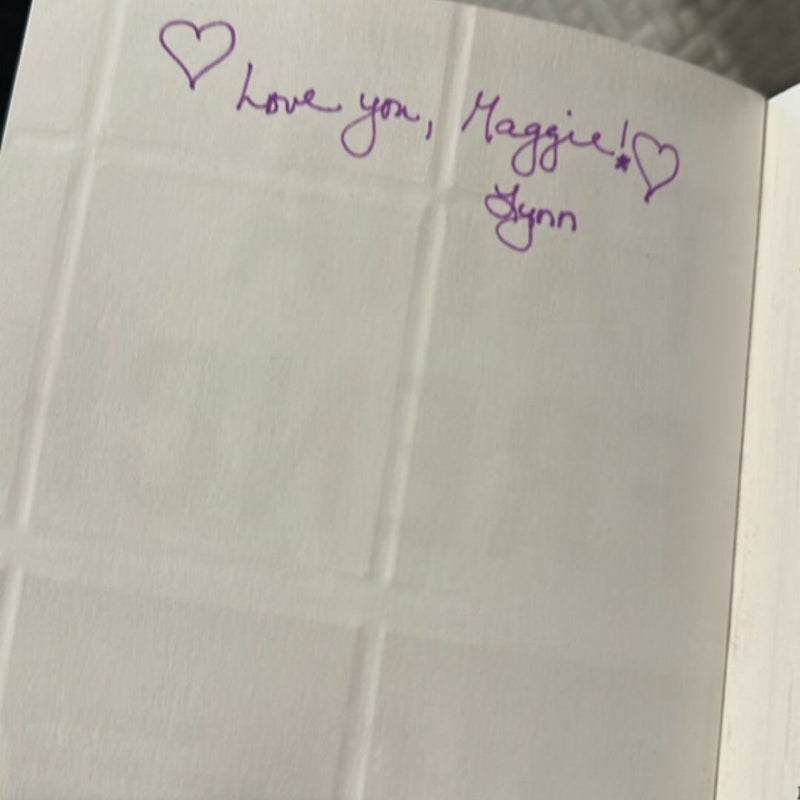 ♡ Love you, Maggie! ♡
Lynn